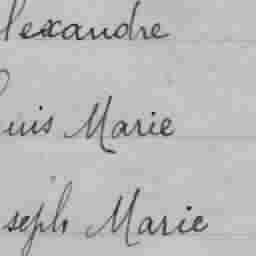 lexandre
ouis Marie
seph Marie